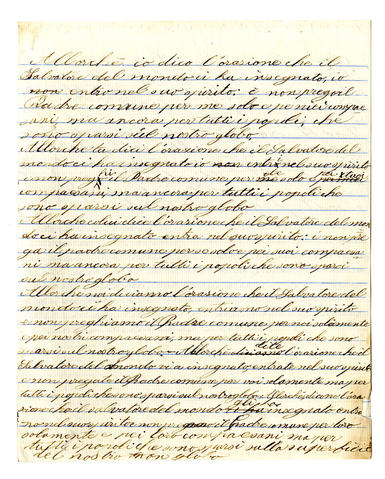 Allorchè io dico l'orazione che il
Salvatore del mondo ci ha insegnato, io
non entro nel suo spirito: e non prego il
Padre comune per me solo e pe' miei compae
sani, ma ancora per tutti i popoli, che
sono sparsi sul nostro globo
Allorche tu dici l'orazione che il Salvatore del
mondo ci ha insegnato io non entri nel suo spirito
e non preghi il Padre comune per te solo pei tuoi
compaesani, ma ancora per tutti i popoli che
sono sparsi sul nostro globo
Allorche colui dice l'orazione che il Salvatore del mon
do ci ha insegnato entra nel suo spirito: e non pre
ga il padre comune per se solo e pa suoi compaesa
ni ma ancora per tutti i popoli che sono sparsi
sul nostro globo
Allorche noi diciamo l'orazione che il Salvatore del
mondo ci ha insegnato, entriamo nel suo spirito
e non preghiamo il Padre comune, per noi solamente
e per nostri compaesani, ma per tutti i popoli che sono
sparsi sul nostro globo. Allorche dite l'orazione che il
Salvatore del mondo vi a insegnato, entrate nel suo spirito
e non pregate il Padre comune per voi solamente ma per
tutti i popoli che sono sparsi sul nostro globo. Allorche diano l'ora
zione che il Salvatore del mondo gli ha insegnato entra
no nel suo spirito e non pregano il Padre comune per loro
solamente e pei loro compaesani ma per
tutti i popoli che sono sparsi sulla superficie
del nostro globo